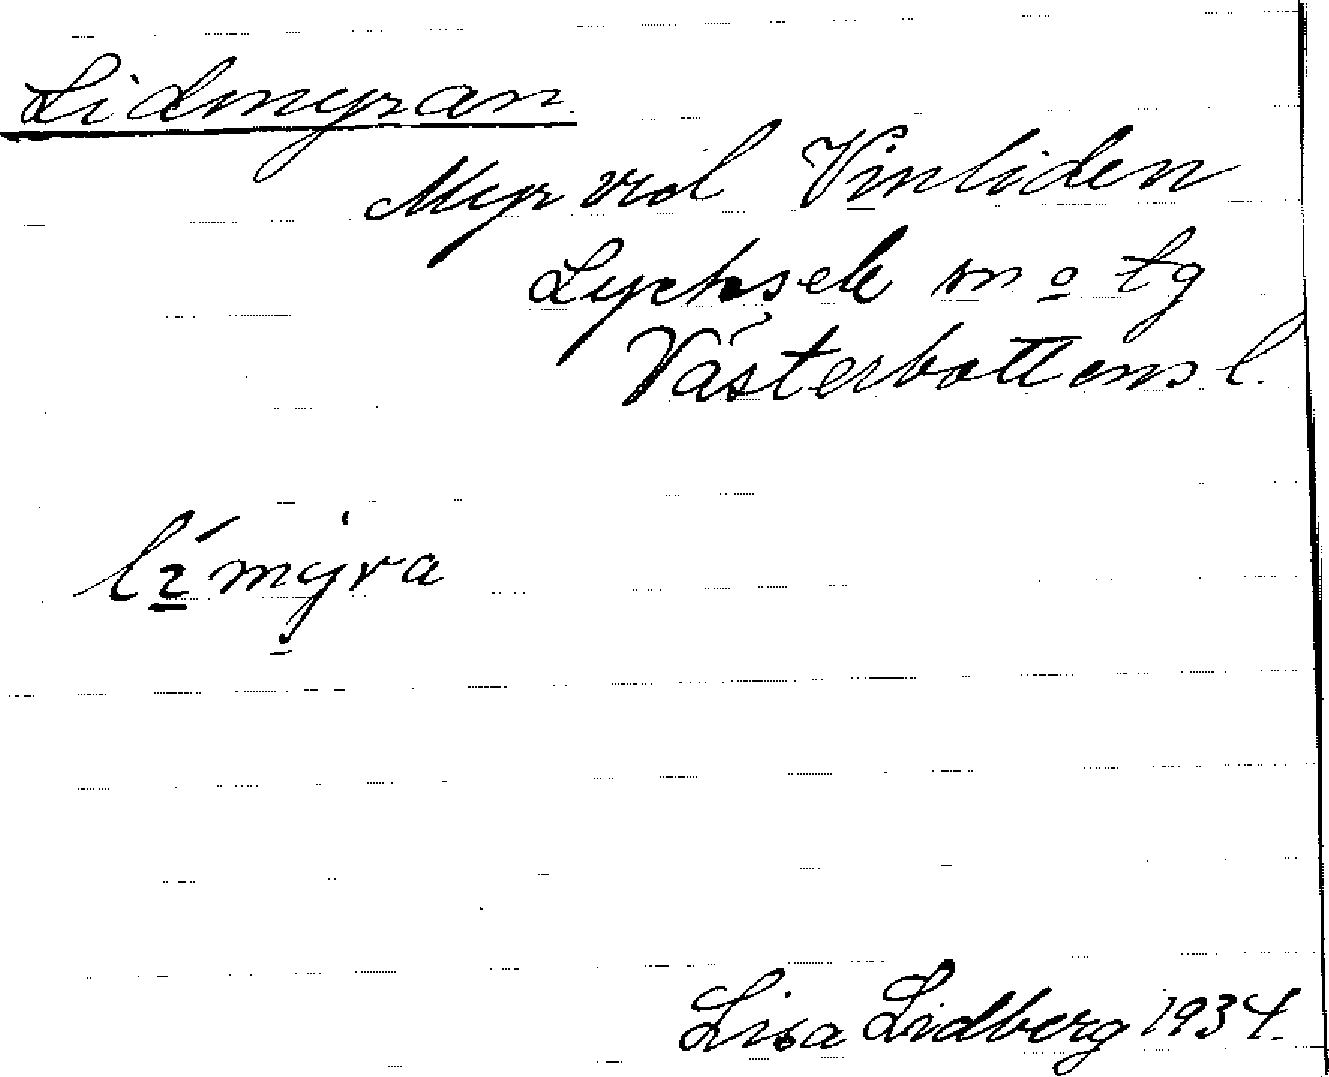 Lidmyran
Myr vid Vinliden
Lycksele sn o tg
Västerbottens l.
lı̱́mỵra
Lisa Lidberg 1934.